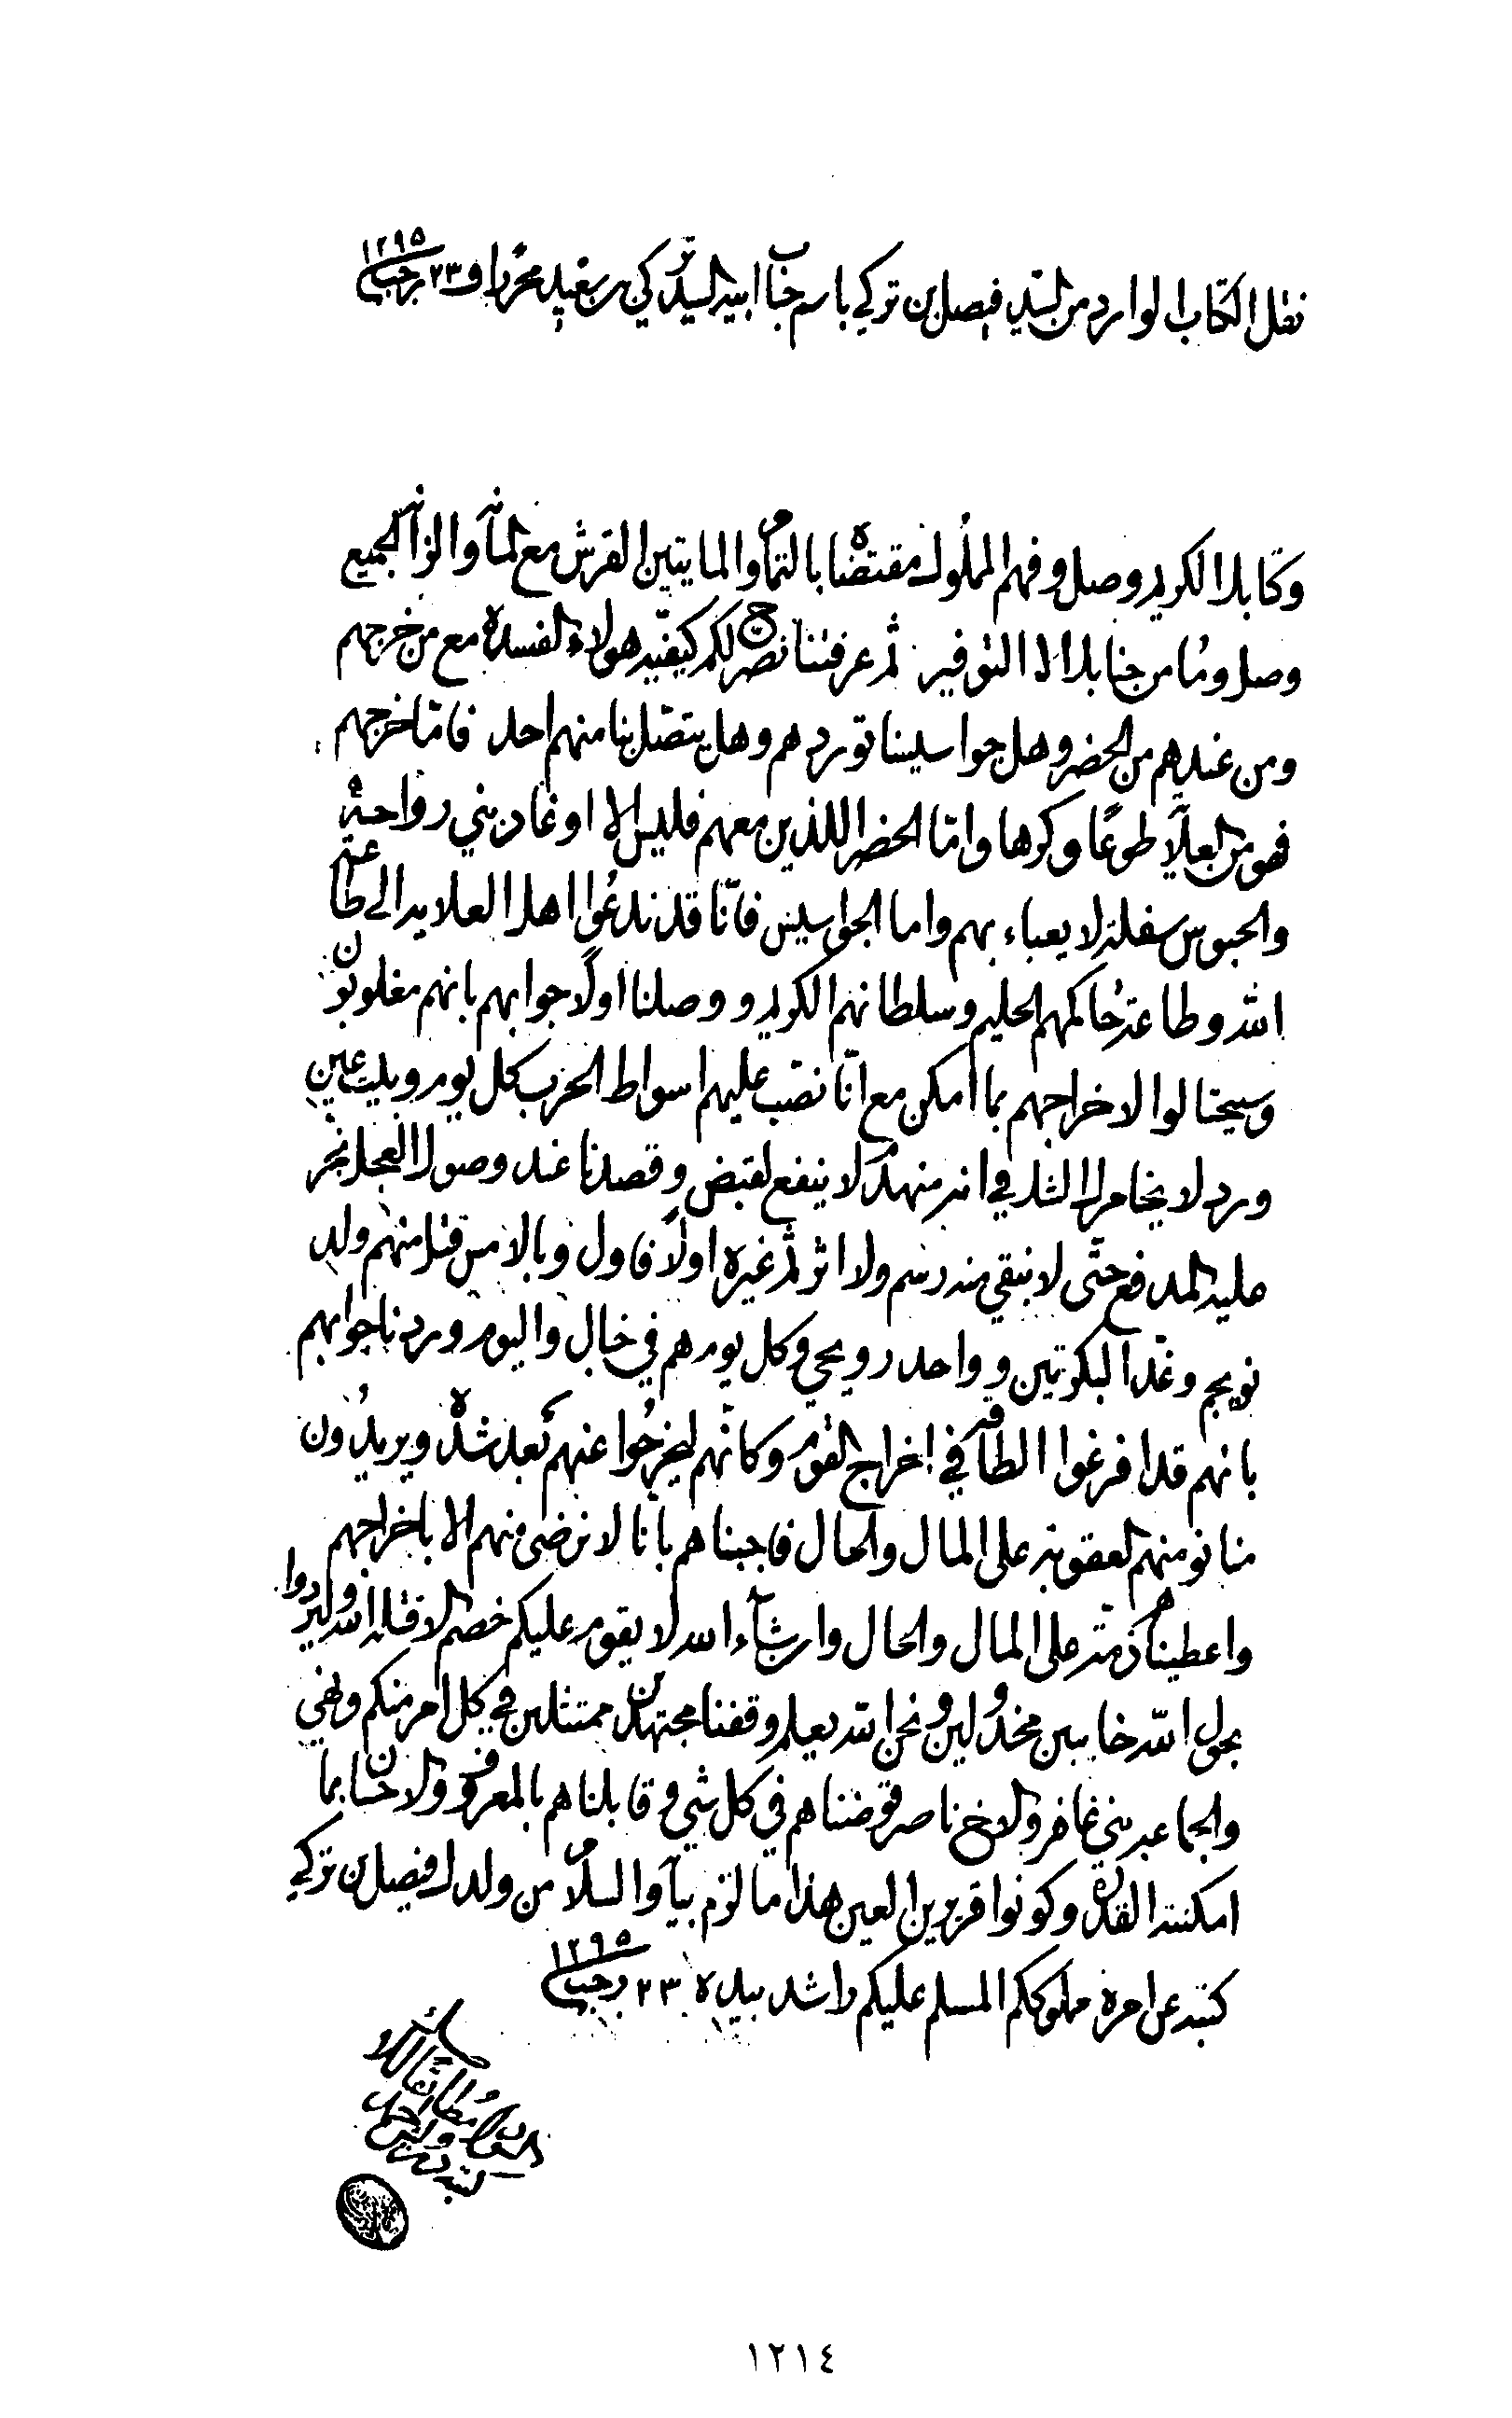 نقل الكتاب الوارد من السيد فيصل بن تركي باسم جناب ابيه السيد تركي بن سعيد محررا في ٢٣ رجب ١٢٩٥
وكتابك الكريم وصل وفهم المملوك مقتضاه بالتمام والمايتين القرش مع المآنه والزانه الجميع
وصل وما من جنابك الا التوفير ثم عرفتنا نصرح لكم كيفية هولاء الفسدة مع من خرجهم
ومن عندهم من الحضر وهل جواسيسنا توردهم وهل يتصل بنا منهم احد فامّا خرجهم
فهو من العلاية طوعًا وكرها وامّا الحضر اللذين معهم فليس الا اوغاد بني رواحة
والحبوس سفلة لا يعباء بهم واما الجواسيس فانّا قد ندعوا اهل العلاية الى طاعة
الله وطاعة حاكمهم الحليم وسلطانهم الكريم ووصلنا اولًا جوابهم بانهم مغلوبون
وسيحتالوا لاخراجهم بما امكن مع انّا نصب عليهم اسواط الحرب كل يوم وبيت عين
ورد لا يخامرك الشك في انه منهدم لا ينفع لقبض وقصدنا عند وصول العجل نجر
عليه المدفع حتى لا نبقي منه رسم ولا اثر ثم غيره اولًا فاول وبالامس قتل منهم ولد
نويجم وغدا البكوتين وواحد رويحي وكل يوم هم في خبال واليوم وردنا جوابهم
بانهم قد افرغوا الطاقة في اخراج القوم وكانّهم ليخرجوا عنهم بعد شدة ويريدون
منا نومنهم العقوبة على المال والحال فاجبناهم بانا لا نرضى منهم الا باخراجهم
واعطيناهم ذمّة على المال والحال وان شآء الله لا يقوم عليكم خصم الا قتله الله وليردوا
بحول الله خايبين مخذولين ونحن الله يعلم وقفنا مجتهدين ممتثلين في كل امر منكم ونهي
والجماعة بني غافر والاخ ناصر فوضناهم في كل شي وقابلناهم بالمعروف والاحسان بما
امكنته القدرة وكونوا قريرين العين هذا ما لزم بيآنه والسلام من ولدك فيصل بن تركي
كتبه عن امره مملوككم المسلم عليكم راشد بيده ٢٣ رجب ١٢٩٥
١٢١٤